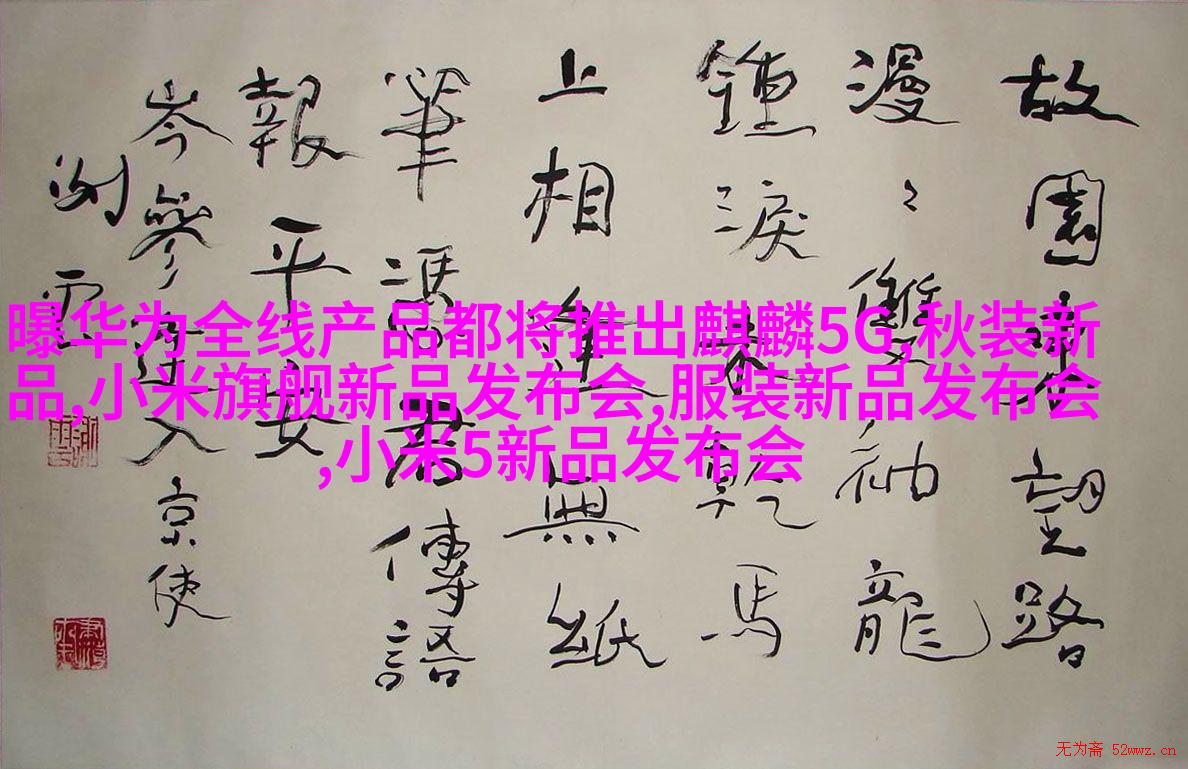 曝华为全线产品都将推出麒麟5G,秋装新
品,小米旗舰新品发布会,服装新品发布会
,小米5新品发布会
故園東望路
漫〻雙袖龍
鍾淚乾馬
上相逢無紙
筆馮君傳語
報平安
岑參逢入京使
无为斋 52wwz.cn